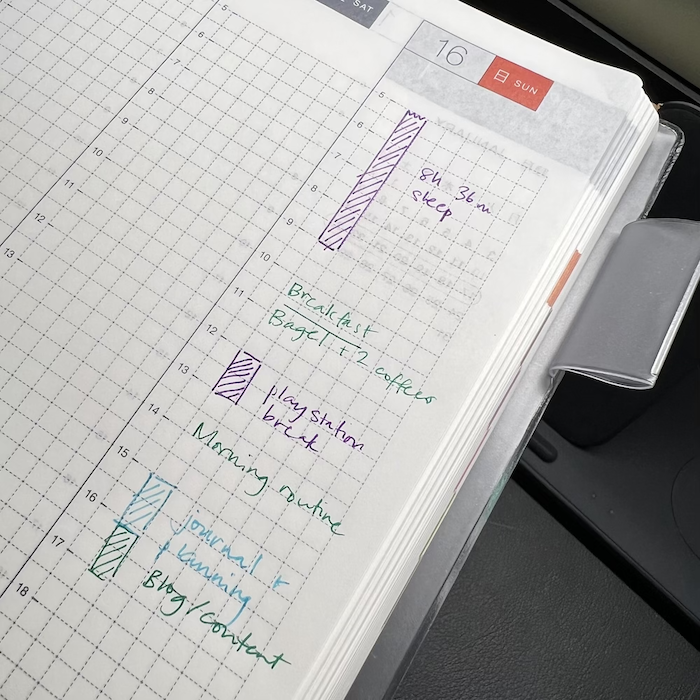 SAT
16 日 SUN
5
6
7
8
9
10
11
12
13
5
6
7
8
9
10
11
12
13
14
15
16
17
18
8h 36m
sleep
Breakfast
Bagel + 2 coffees
playstation
break
Morning routine
journal &
planning
Blog/content